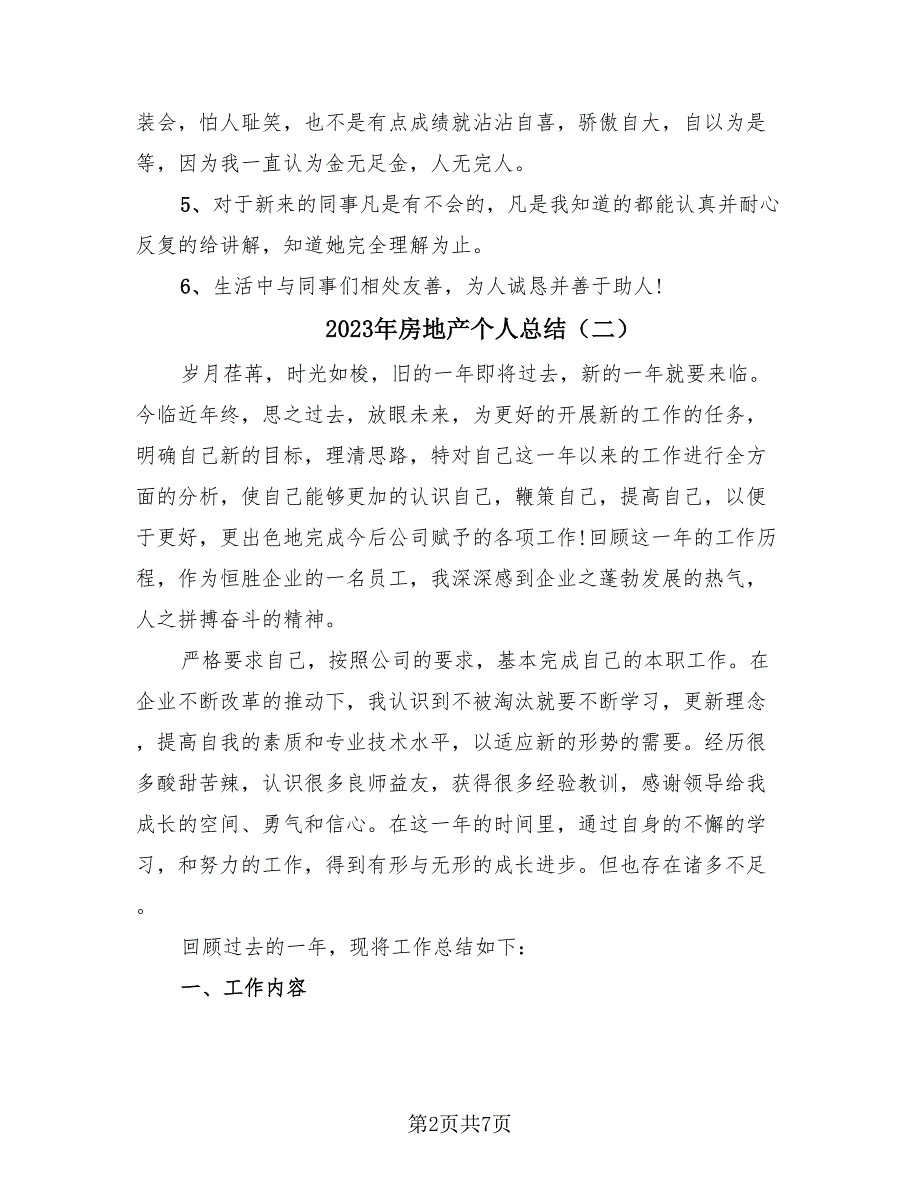 装会，怕人耻笑，也不是有点成绩就沾沾自喜，骄傲自大，自以为是
等，因为我一直认为金无足金，人无完人。
5、对于新来的同事凡是有不会的，凡是我知道的都能认真并耐心
反复的给讲解，知道她完全理解为止。
6、生活中与同事们相处友善，为人诚恳并善于助人!
2023年房地产个人总结（二）
岁月荏苒，时光如梭，旧的一年即将过去，新的一年就要来临。
今临近年终，思之过去，放眼未来，为更好的开展新的工作的任务，
明确自己新的目标，理清思路，特对自己这一年以来的工作进行全方
面的分析，使自己能够更加的认识自己，鞭策自己，提高自己，以便
于更好，更出色地完成今后公司赋予的各项工作!回顾这一年的工作历
程，作为恒胜企业的一名员工，我深深感到企业之蓬勃发展的热气，
人之拼搏奋斗的精神。
严格要求自己，按照公司的要求，基本完成自己的本职工作。在
企业不断改革的推动下，我认识到不被淘汰就要不断学习，更新理念
，提高自我的素质和专业技术水平，以适应新的形势的需要。经历很
多酸甜苦辣，认识很多良师益友，获得很多经验教训，感谢领导给我
成长的空间、勇气和信心。在这一年的时间里，通过自身的不懈的学
习，和努力的工作，得到有形与无形的成长进步。但也存在诸多不足
。
回顾过去的一年，现将工作总结如下：
一、工作内容
第2页共7页